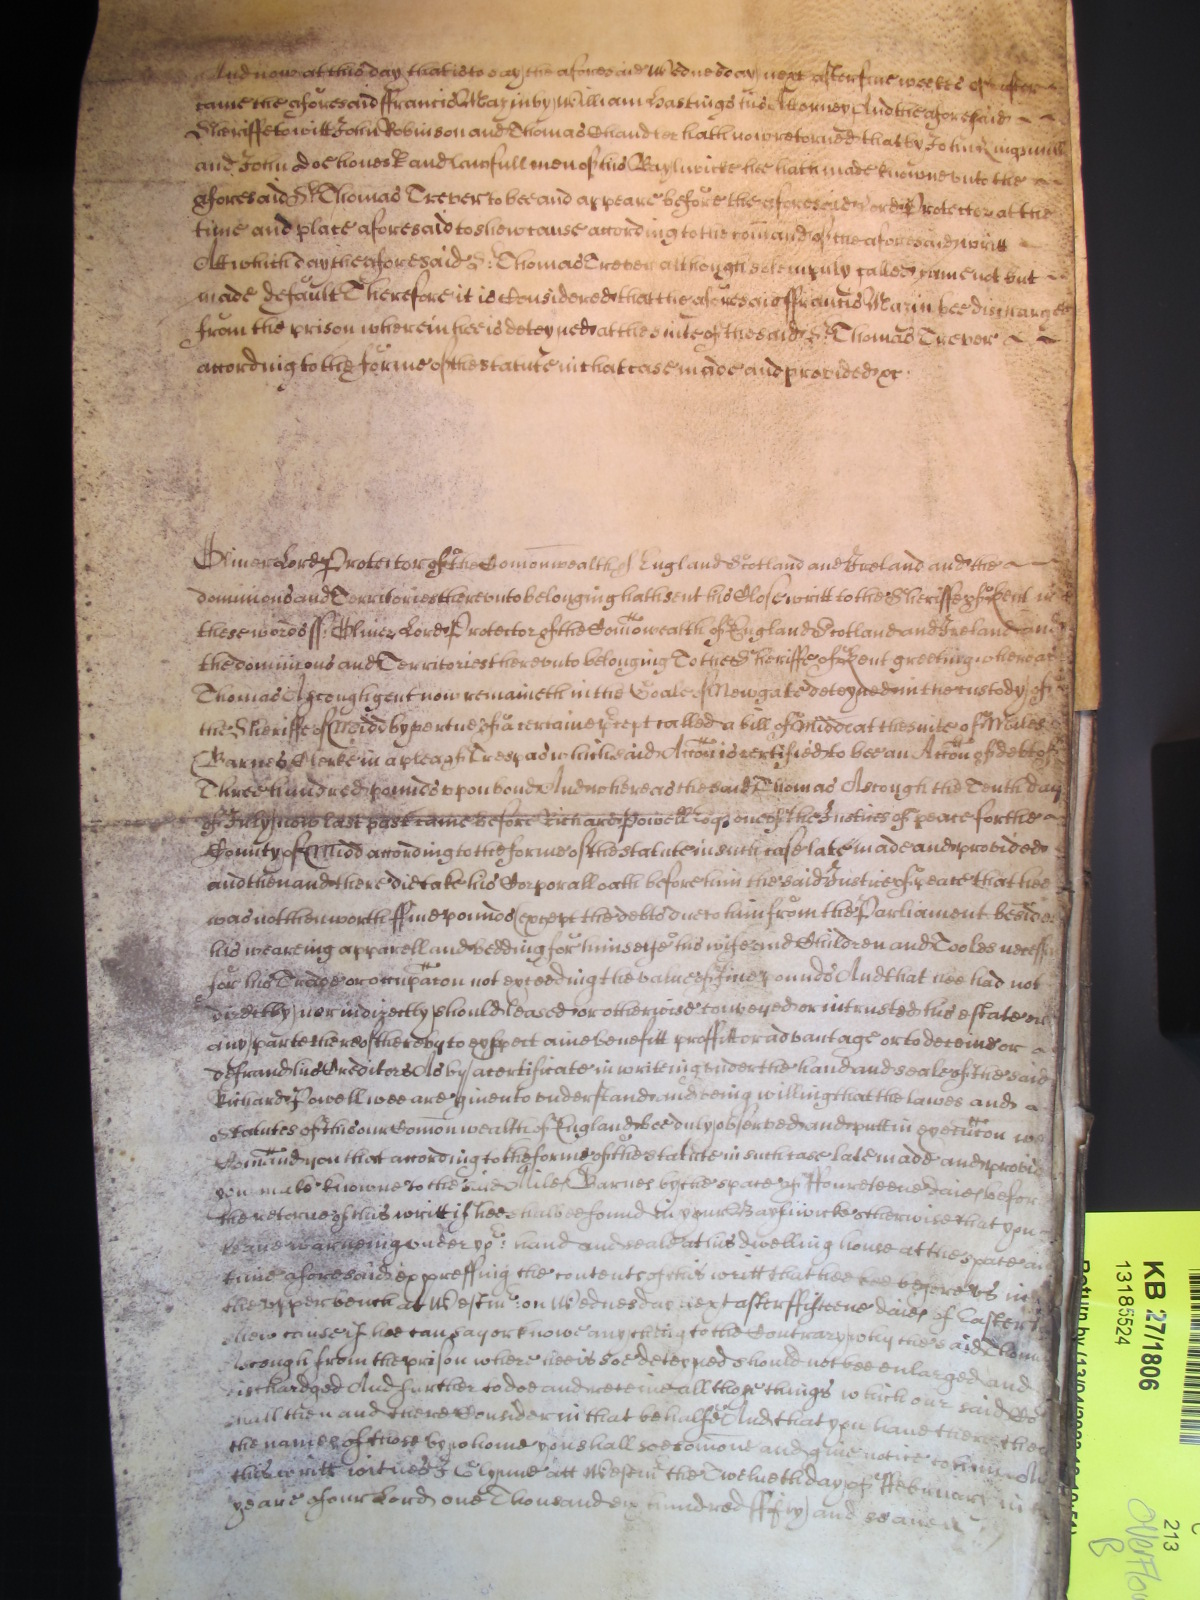 And now at this day that is to say the aforesaid Wednesday next after five weekes of Easter
came the aforesaid ffrancis Mazin by William Hastings his Attorney And the aforesaid
Sheriffe to witt John Robinson and Thomas Chandler hath now retorned that by John
and John Doe honest and lawfull men of his Baylywicke hee hath made knowne unto the
aforesaid Sr. Thomas Trever to bee and appeare before the aforesaid Lord Protector at the
time and place aforesaid to shew cause according to the comand of the aforesaid writt
Att which day the aforesaid Sr. Thomas Trever although solempnly called came not but
made default Therefore it is Considered that the aforesaid ffrancis Mazin bee discharged
from the prison wherein hee is deteyned at the suite of the said Sr. Thomas Trever
according to the forme of the statute in that case made and provided &c.
Oliver Lord Protector of the Comonwealth of England Scotland and Ireland and the
dominions and Territories thereunto belonging hath sent his Close writt to the Sheriffe of Kent in
these words ss: Oliver Lord Protector of the Comonwealth of England Scotland and Ireland and
the dominions and Territories thereunto belonging To the Sheriffe of Kent greeting whereas
Thomas Ascough gent now remaineth in the Goale of Newgate deteyned in the custody of
the Sheriffe of Midd by vertue of a certaine precept called a bill of Midd at the suite of Miles
Barnes Clerke in a plea of Trespas which said Accon is certified to bee an Accon of debt of
Three hundred pounds upon bond And whereas the said Thomas Ascough the Tenth day
of July now last past came before Richard Powell Esq. one of the Justices of peace for the
County of Midd according to the forme of the statute in such case late made and provided
and then and there did take his Corporall oath before him the said Justice of peace that hee
was not then worth ffive pounds (except the debts due to him from the Parliament beside
his weareing apparell and bedding for himselfe his wife and Children and Tooles necess
for his Trade or occupacon not exceeding the value of five pounds And that hee had not
directly nor indirectly should leased or otherwise conveyed or intrusted his estate or
any parte thereof thereby to expect anie benefitt proffitt or advantage or to deceive or
defraud his Creditors As by a certificate in writeing under the hand and seale of the said
Richard Powell wee are given to understand and being willing that the lawes and
statutes of this our Comonwealth of England bee duly observed and putt in execucon we
Comand you that according to the forme of the statute in such case late made and provid
you make knowne to the said Miles Barnes by the space of ffoureteene daies befor
the retorne of this writt if hee shalbee found in your Baylywicke otherwise that you
leave warneing under yor. hand and seale at his dwelling house at the space and
time aforesaid expressing the contents of this writt that hee bee before us in
the upper bench at Westmr. on Wednesday next after ffifteene daies of Easter
shew cause if hee can say or knowe any thing to the Contrary why the said Thom
Ascough from the prison where hee is soe deteyned should not bee enlarged and
dischardged And further to doe and receive all those things which our said Co
shall then and there Consider in that behalfe And that you have there then
the names of those by whome you shall soe comone and give notice to him
this writt witnes J Glynne att Westmr the Twelveth day of ffebruary in
yeare of our Lord one Thousand six hundred ffifty and seaven
KB 27/1806
13185524
213
Overflow
B